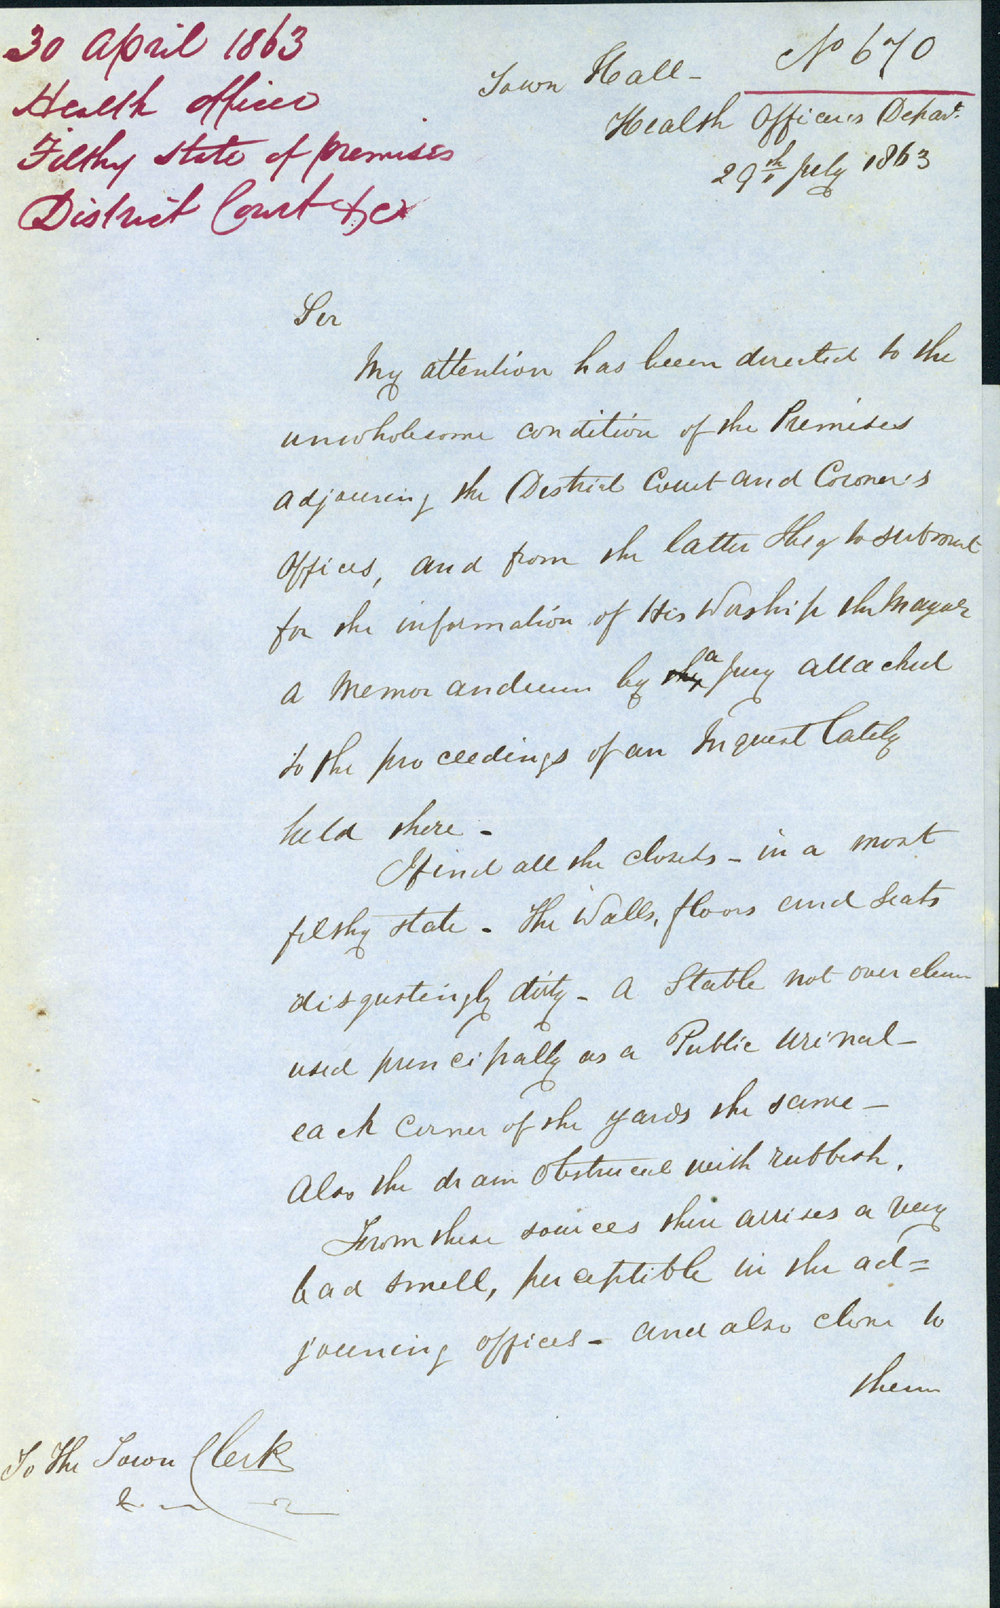 30 April 1863
Health officer
Filthy state of premises
District Court &c
No 670
Town Hall -
Health Officers Depart.
29th July 1863
Sir
My attention has been directed to the
unwholesome condition of the Premises
adjoining the District Court and Coroner's
Offices, and from the latter I beg to submit
for the information of His Worship the Mayor
a Memorandum by a Jury attached
to the proceedings of an Inquest lately
held there -
I find all the closets - in a most
filthy state - The Walls, floors and Seats
disgustingly dirty - a Stable not over clean
used principally as a Public Urinal -
each corner of the yards the same -
Also the drain obstructed with rubbish.
From these sources there arrises a very
bad smell, perceptible in the ad=
joining offices - and also close to
them
To The Town Clerk